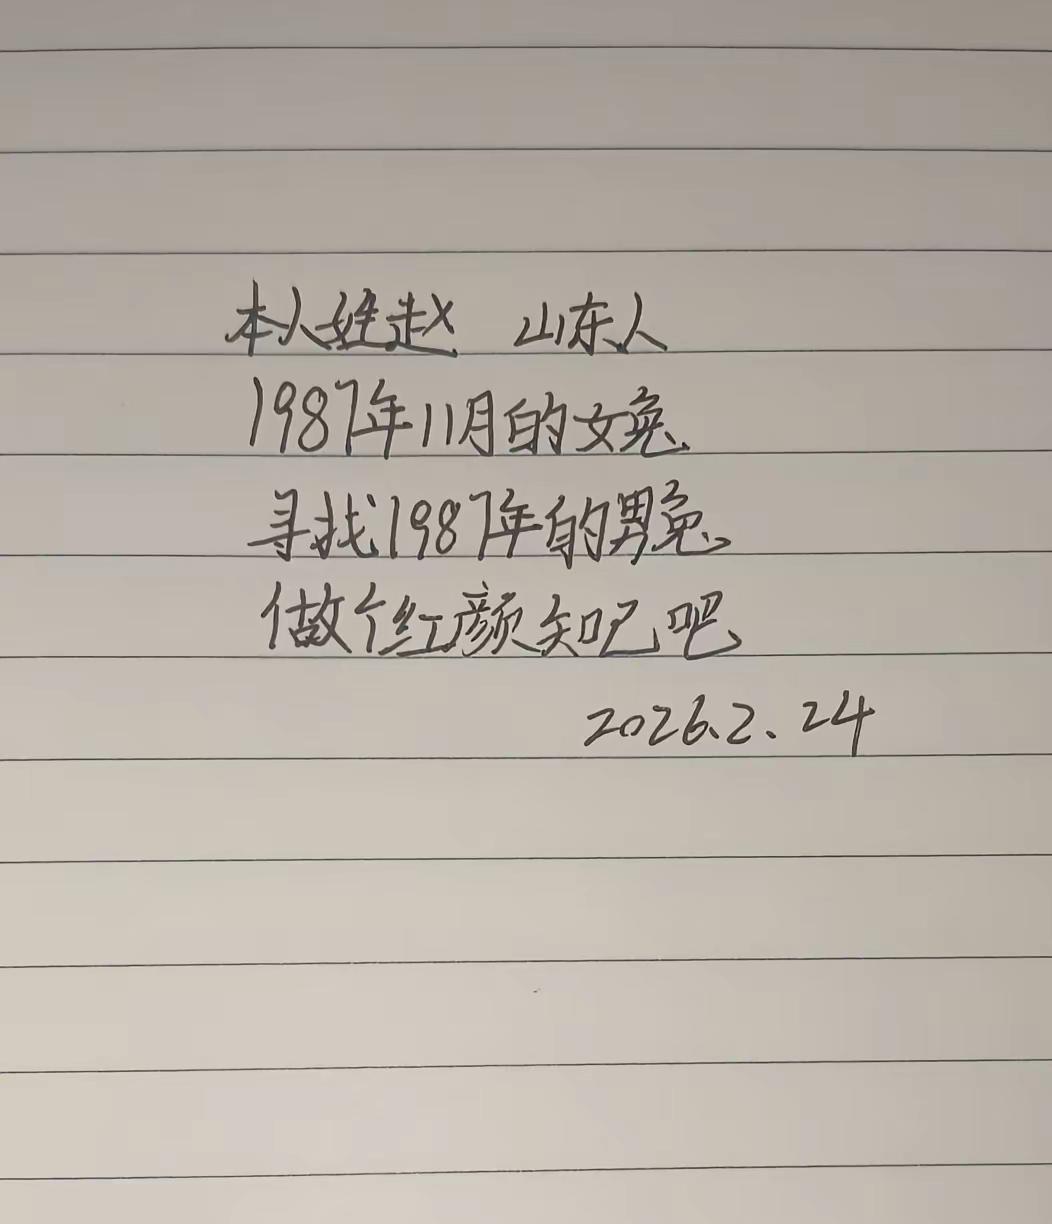 本人姓赵 山东人
1987年11月的女兔
寻找1987年的男兔
做个红颜知己吧
2026.2.24